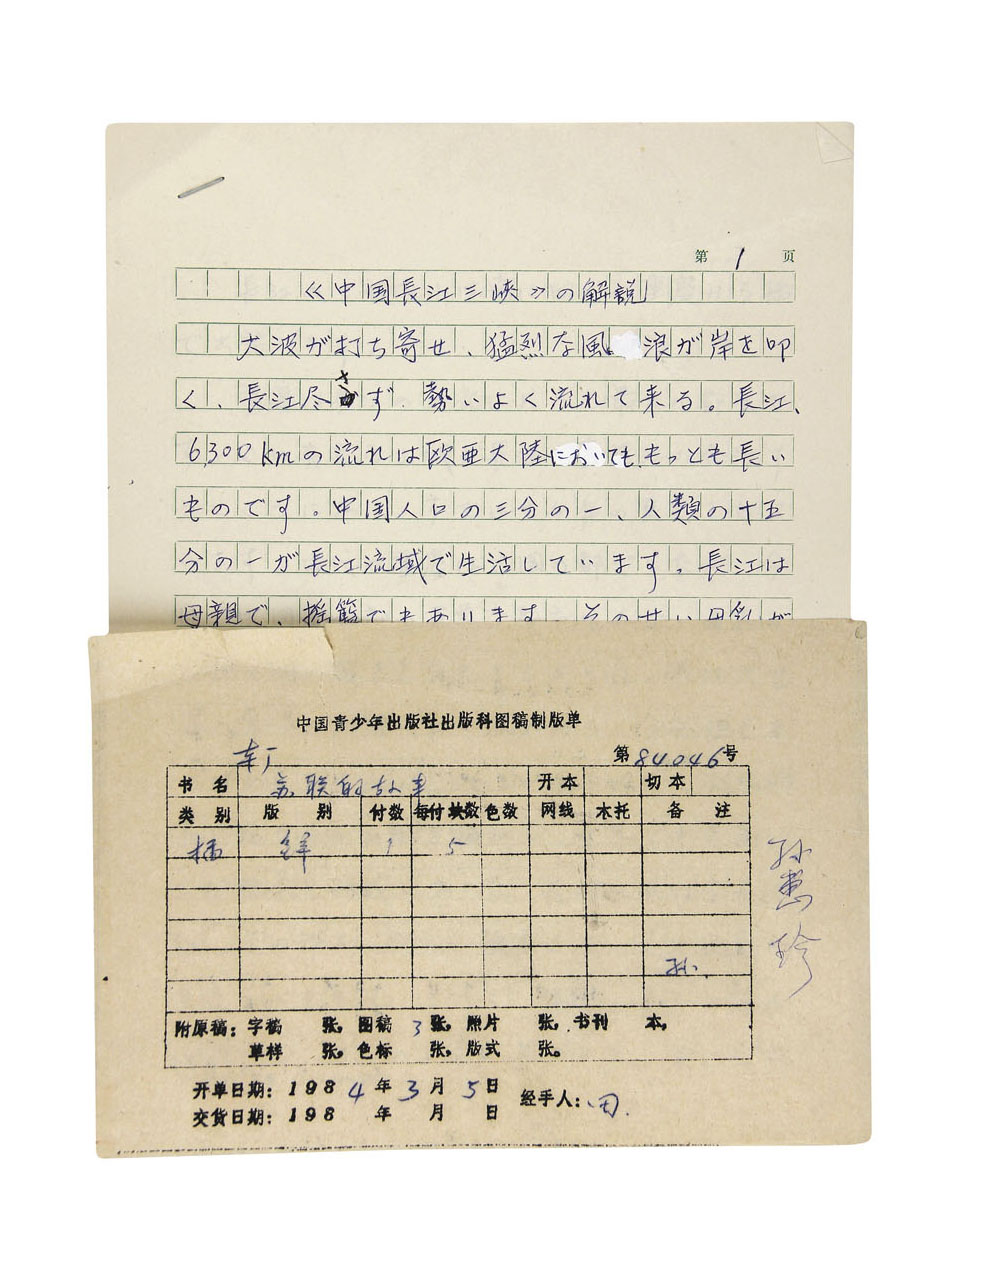 第 1 页
《中国長江三峡》の解説
大波が打ち寄せ、猛烈な風 浪が岸を叩
く、長江尽きず、勢いよく流れて来る。長江、
6,300kmの流れは欧亜大陸においても、もっとも長い
ものです。中国人口の三分の一、人類の十五
分の一が長江流域で生活しています。長江は
母親で、揺籃でもあります。そのせい母乳が
中国青少年出版社出版科图稿制版单
第84046号
书名 苏联的故事 开本 切本
类别 版别 付数 每付块数 色数 网线 木托 备注
插 锌 1 5
孙
附原稿：字稿 张，图稿 3 张，照片 张，书刊 本，
草样 张，色标 张，版式 张。
开单日期：1984年3月5日
经手人：田
交货日期：198 年 月 日